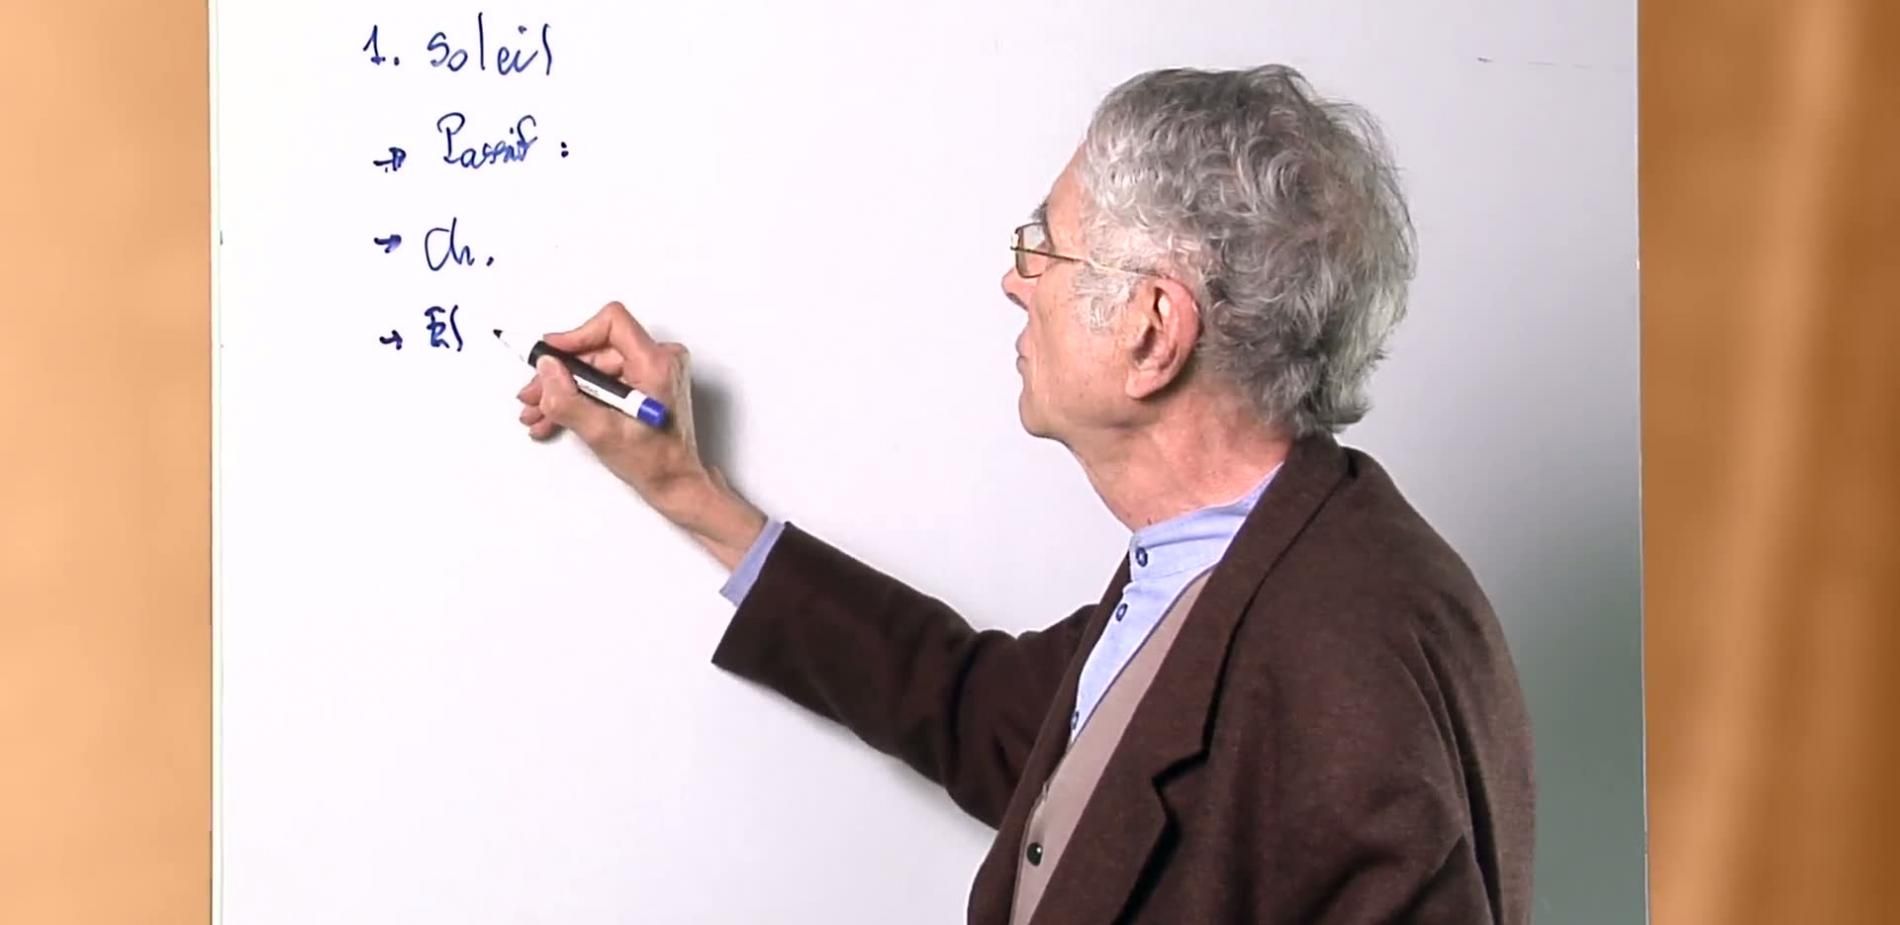 1. Soleil
→ Passif :
→ Ch.
→ El